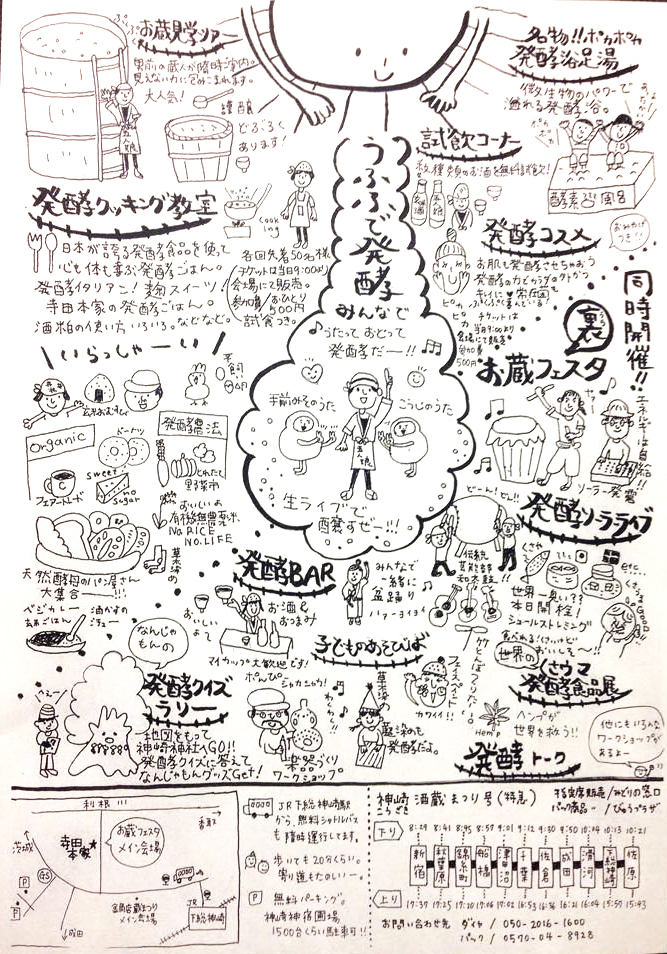 お蔵見学ツアー
男前の蔵人が随時案内。
見えない力に包みこまれます。
大人気!
どぶろく
あります!
五人娘
名物!!ポカポカ
発酵浴足湯
微生物のパワーで
溢れる発酵浴。
ポカポカ
酵素浴風呂
試飲コーナー
数種類のお酒を無料試飲!
うふふで発酵
みんなで
うたって おどって
発酵だー!!
手前みそのうた
こうじのうた
五人娘
生ライブで
醸すぜー!!!
発酵クッキング教室
cooking
日本が誇る発酵食品を使って
心も体も喜ぶ発酵ごはん。
発酵イタリアン!麹スイーツ!
寺田本家の発酵ごはん。
酒粕の使い方いろいろ。などなど。
各回先着50名様
チケットは当日9:00より
会場にて販売。
参加費/おひとり
500円
試食つき。
発酵コスメ
お肌も発酵させちゃおう
ピカピカ
チケットは
当日9:00より
会場にて販売
参加費
500円
同時開催!!
裏
お蔵フェスタ
エネルギーは自給!!
ソーラー発電
発酵ソーラーライブ
どーん!どん!!
伝統
芸能部
和太鼓!!
\いらっしゃーい/
玄米おむすび
平飼
organic
ドーナツ
フェアートレード
sweet
no
sugar
発酵農法
とれたて
野菜市
おいしいよ
有機無農薬米
No RICE
NO LIFE
天然酵母のパン屋さん
大集合ー!!!
ベジカレー
玄米ごはん
酒かすの
シチュー
草木染め
発酵BAR
お酒&
おつまみ
おいしい
よ
マイカップ大歓迎です!
みんなで
一緒に
盆踊り
くさや
etc...
世界一臭い??
本日開栓!
シュールストレミング
食べれる!くさいけど
おいしぞ~!!
世界の
くさウマ
発酵食品展
子どものあそびば
フェイスペイント
カワイイ!!
とんぼつりだー!
なんじゃ
もんの
発酵クイズ
ラリー
地図をもって
神崎神社へGO!!
発酵クイズに答えて
なんじゃもんグッズGet!
へぇ~
ポんぴん
シャカシャカ!
楽器づくり
ワークショップ
わくわく!!
草木染め
藍染めも
発酵だよ。
Hemp
ヘンプが
世界を救う!!
発酵トーク
他にもいろんな
ワークショップが
あるよー
利根川
香取
茨城
寺田
本家
お蔵フェスタ
メイン会場
GS
P
P
成田
メイン会場
JR
下総神崎
JR下総神崎駅
から、無料シャトルバス
も随時運行してます。
歩いても20分くらい。
寄り道もたのしいー。
P
無料パーキング。
神崎神宿圃場
1500台くらい駐車可!!
神崎酒蔵まつり号(特急)
こうざき
指定席販売/みどりの窓口
パック商品ー/びゅうプラザ
下り 8:29 8:41 8:45 8:53 9:01 9:12 9:30 9:50 10:04 10:13 10:21
新宿 秋葉原 錦糸町 船橋 津田沼 千葉 佐倉 成田 滑河 下総神崎 佐原
上り 17:37 17:25 17:20 17:06 17:02 16:53 16:36 16:21 16:04 15:59 15:43
お問い合わせ先 ダイヤ / 050-2016-1600
パック / 0570-04-8928